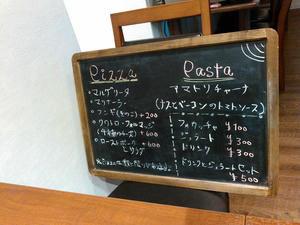 Pizza
・マルゲリータ
・マリナーラ
・フンギ(きのこ) +200
・クワトロ・フォルマッジ
(4種のチーズ) +600
・ローストポーク +600
Pasta
アマトリチャーナ
(ナスとベーコンのトマトソース)
フォカッチャ ¥100
ジェラート ¥300
ドリンク ¥300
ドリンクとジェラートセット
¥500